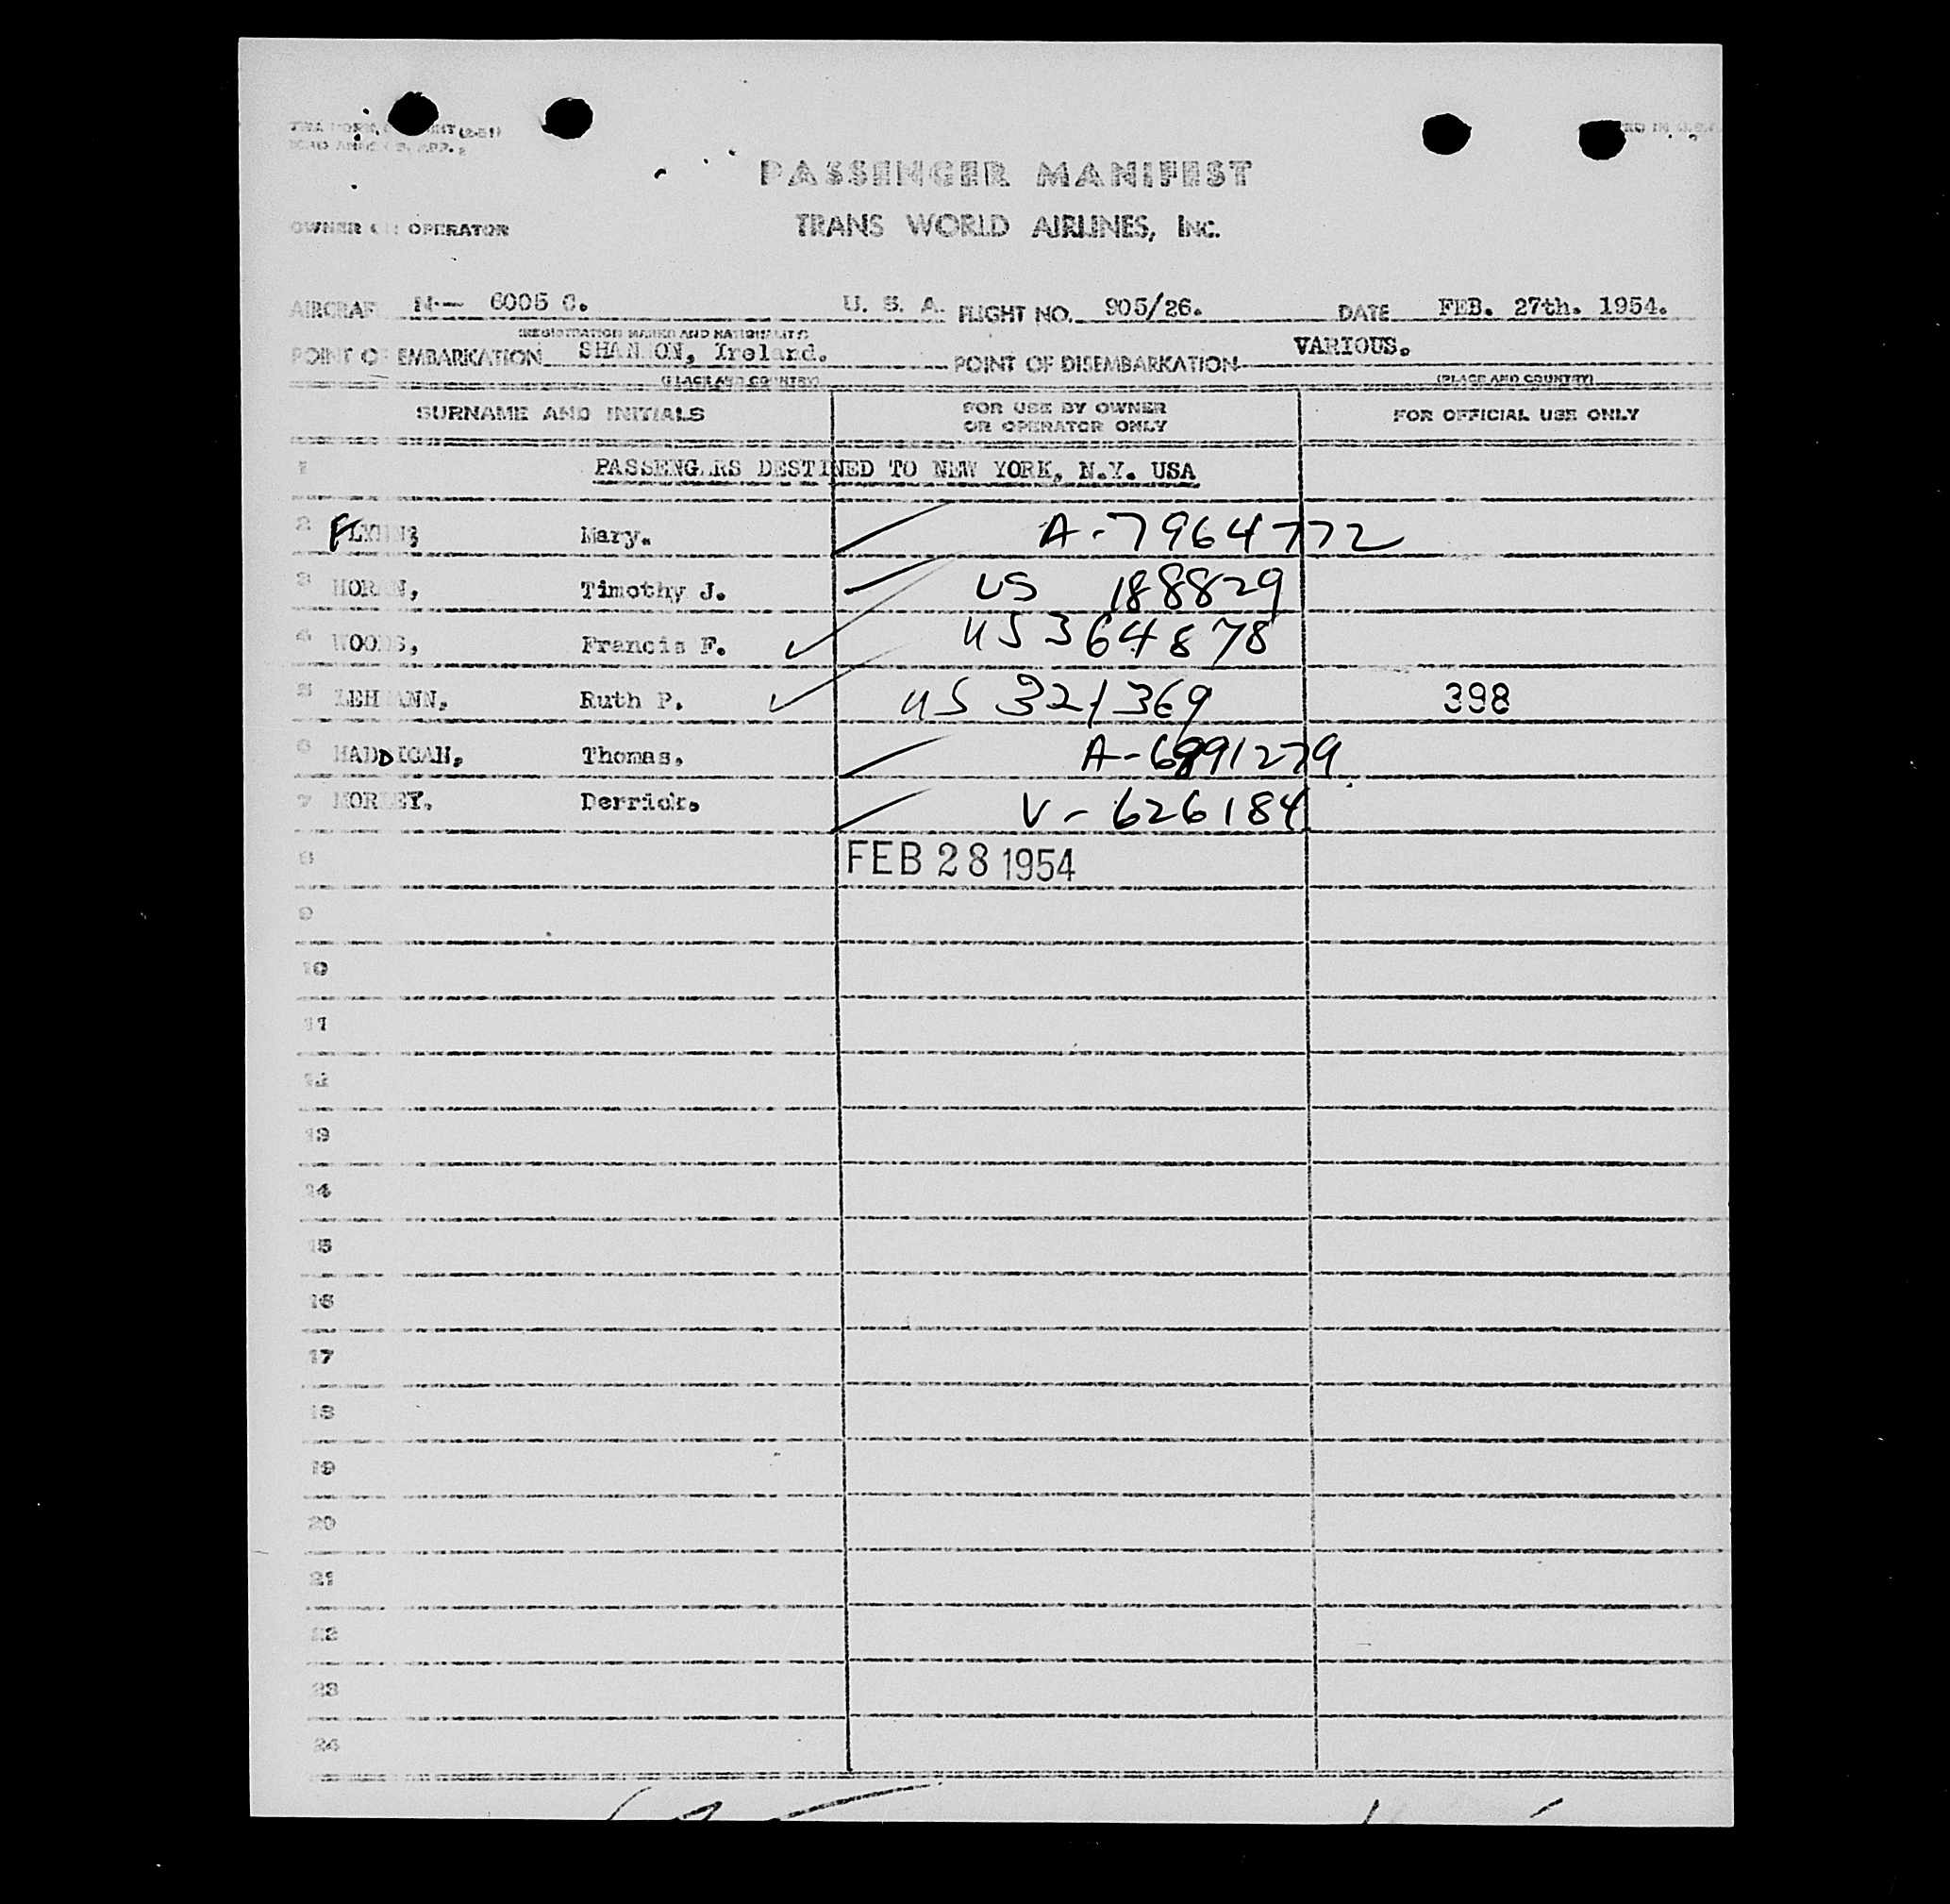 PASSENGER MANIFEST
OWNER OR OPERATOR TRANS WORLD AIRLINES, INC.
AIRCRAFT N-- 6005 C. U. S. A. FLIGHT NO. 905/26. DATE FEB. 27th. 1954.
(REGISTRATION MARKS AND NATIONALITY)
POINT OF EMBARKATION SHANNON, Ireland. POINT OF DISEMBARKATION VARIOUS.
(PLACE AND COUNTRY) (PLACE AND COUNTRY)
SURNAME AND INITIALS FOR USE BY OWNER OR OPERATOR ONLY FOR OFFICIAL USE ONLY
1 PASSENGERS DESTINED TO NEW YORK, N.Y. USA
2 Mary. A-7964772
3 HORAN, Timothy J. US 188829
4 WOODS, Francis F. US 364878
5 LEHMANN, Ruth P. US 321369 398
6 HADDIGAN, Thomas. A-6991279
7 MORLEY. Derrick. V-626184
8 FEB 28 1954
9
10
11
12
13
14
15
16
17
18
19
20
21
22
23
24